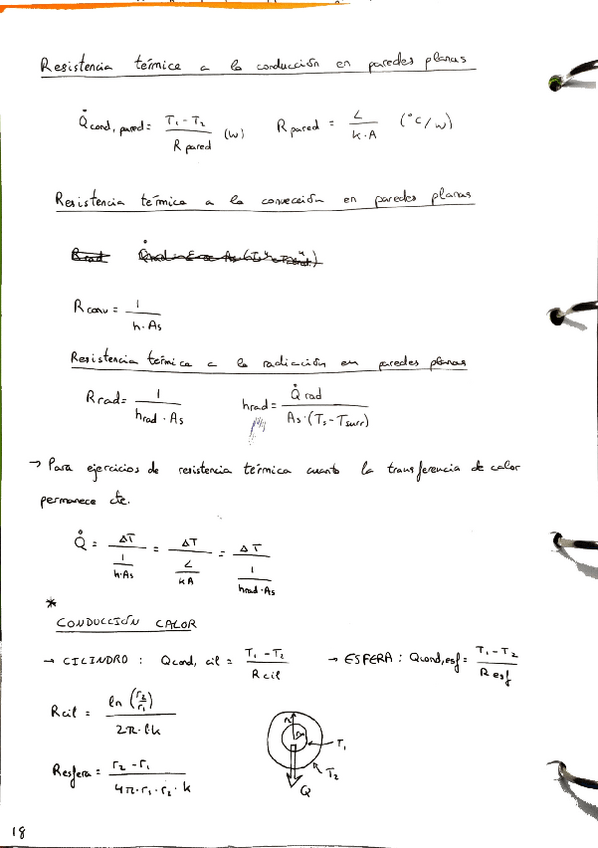 Resistencia térmica a la conducción en paredes planas
Q̇cond, pared = (T₁ - T₂) / R pared (W)   R pared = L / (k·A) (°C/W)
Resistencia térmica a la convección en paredes planas
Rrad
Rconv = 1 / (h·As)
Resistencia térmica a la radiación en paredes planas
Rrad = 1 / (hrad·As)   hrad = Q̇rad / (As·(Ts - Tsurr))
→ Para ejercicios de resistencia térmica cuanto la transferencia de calor
permanece cte.
Q̇ = ΔT / (1 / (h·As)) = ΔT / (L / (kA)) = ΔT / (1 / (hrad·As))
*
CONDUCCIÓN CALOR
→ CILINDRO : Qcond, cil = (T₁ - T₂) / Rcil   → ESFERA : Qcond, esf = (T₁ - T₂) / Resf
Rcil = ln (r₂/r₁) / (2π·l·k)
T₁
T₂
Resfera = (r₂ - r₁) / (4π·r₁·r₂·k)
Q
18